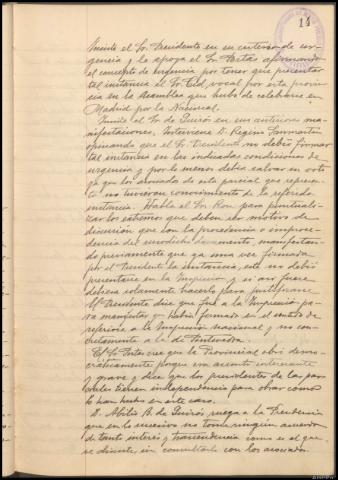 14
Insiste el Sr. Presidente en su criterio de ur-
gencia y le apoya el Sr. afirmando
el concepto de urgencia por tener que presentar
tal instancia el Sr. Cid, vocal por esta provin
cia en la Asamblea que hubo de celebrarse en
Madrid por la Nacional.
Insiste el Sr. de Quirós en sus anteriores ma-
nifestaciones. Interviene D. Regino Sanmartín
opinando que el Sr. Presidente no debió firmar
tal instancia en las indicadas condiciones de
urgencia y que por lo menos debía salvar en esta
que los asociados de esta que represen
ta no tuvieran conocimiento de la referida
instancia. Habla el Sr. Ron para puntuali-
zar los extremos que deben ser motivo de
discusión que son la procedencia o improce-
dencia del documento, manifestan-
do previamente que ya una vez firmada
por el Presidente la instancia, este no debió
presentarse en la Inspección y si así fuera
debiera solamente hacerlo para
El Presidente dice que fué a la Inspección pa-
ra manifestar que había firmado en el sentido de
referirse a la Inspección nacional y no con-
cretamente a la de Pontevedra.
El Sr. cree que la Provincial obró demo-
cráticamente porque era asunto interesante
y grave y dice que los presidentes de las pro-
vinciales tienen independencia para obrar como
lo han hecho en este caso.
D. Abilio B. de Quirós ruega a la Presidencia
que en lo sucesivo no tome ningún acuerdo
de tanto interés y trascendencia como es el que
se discute, sin consultarlo con los asociados.